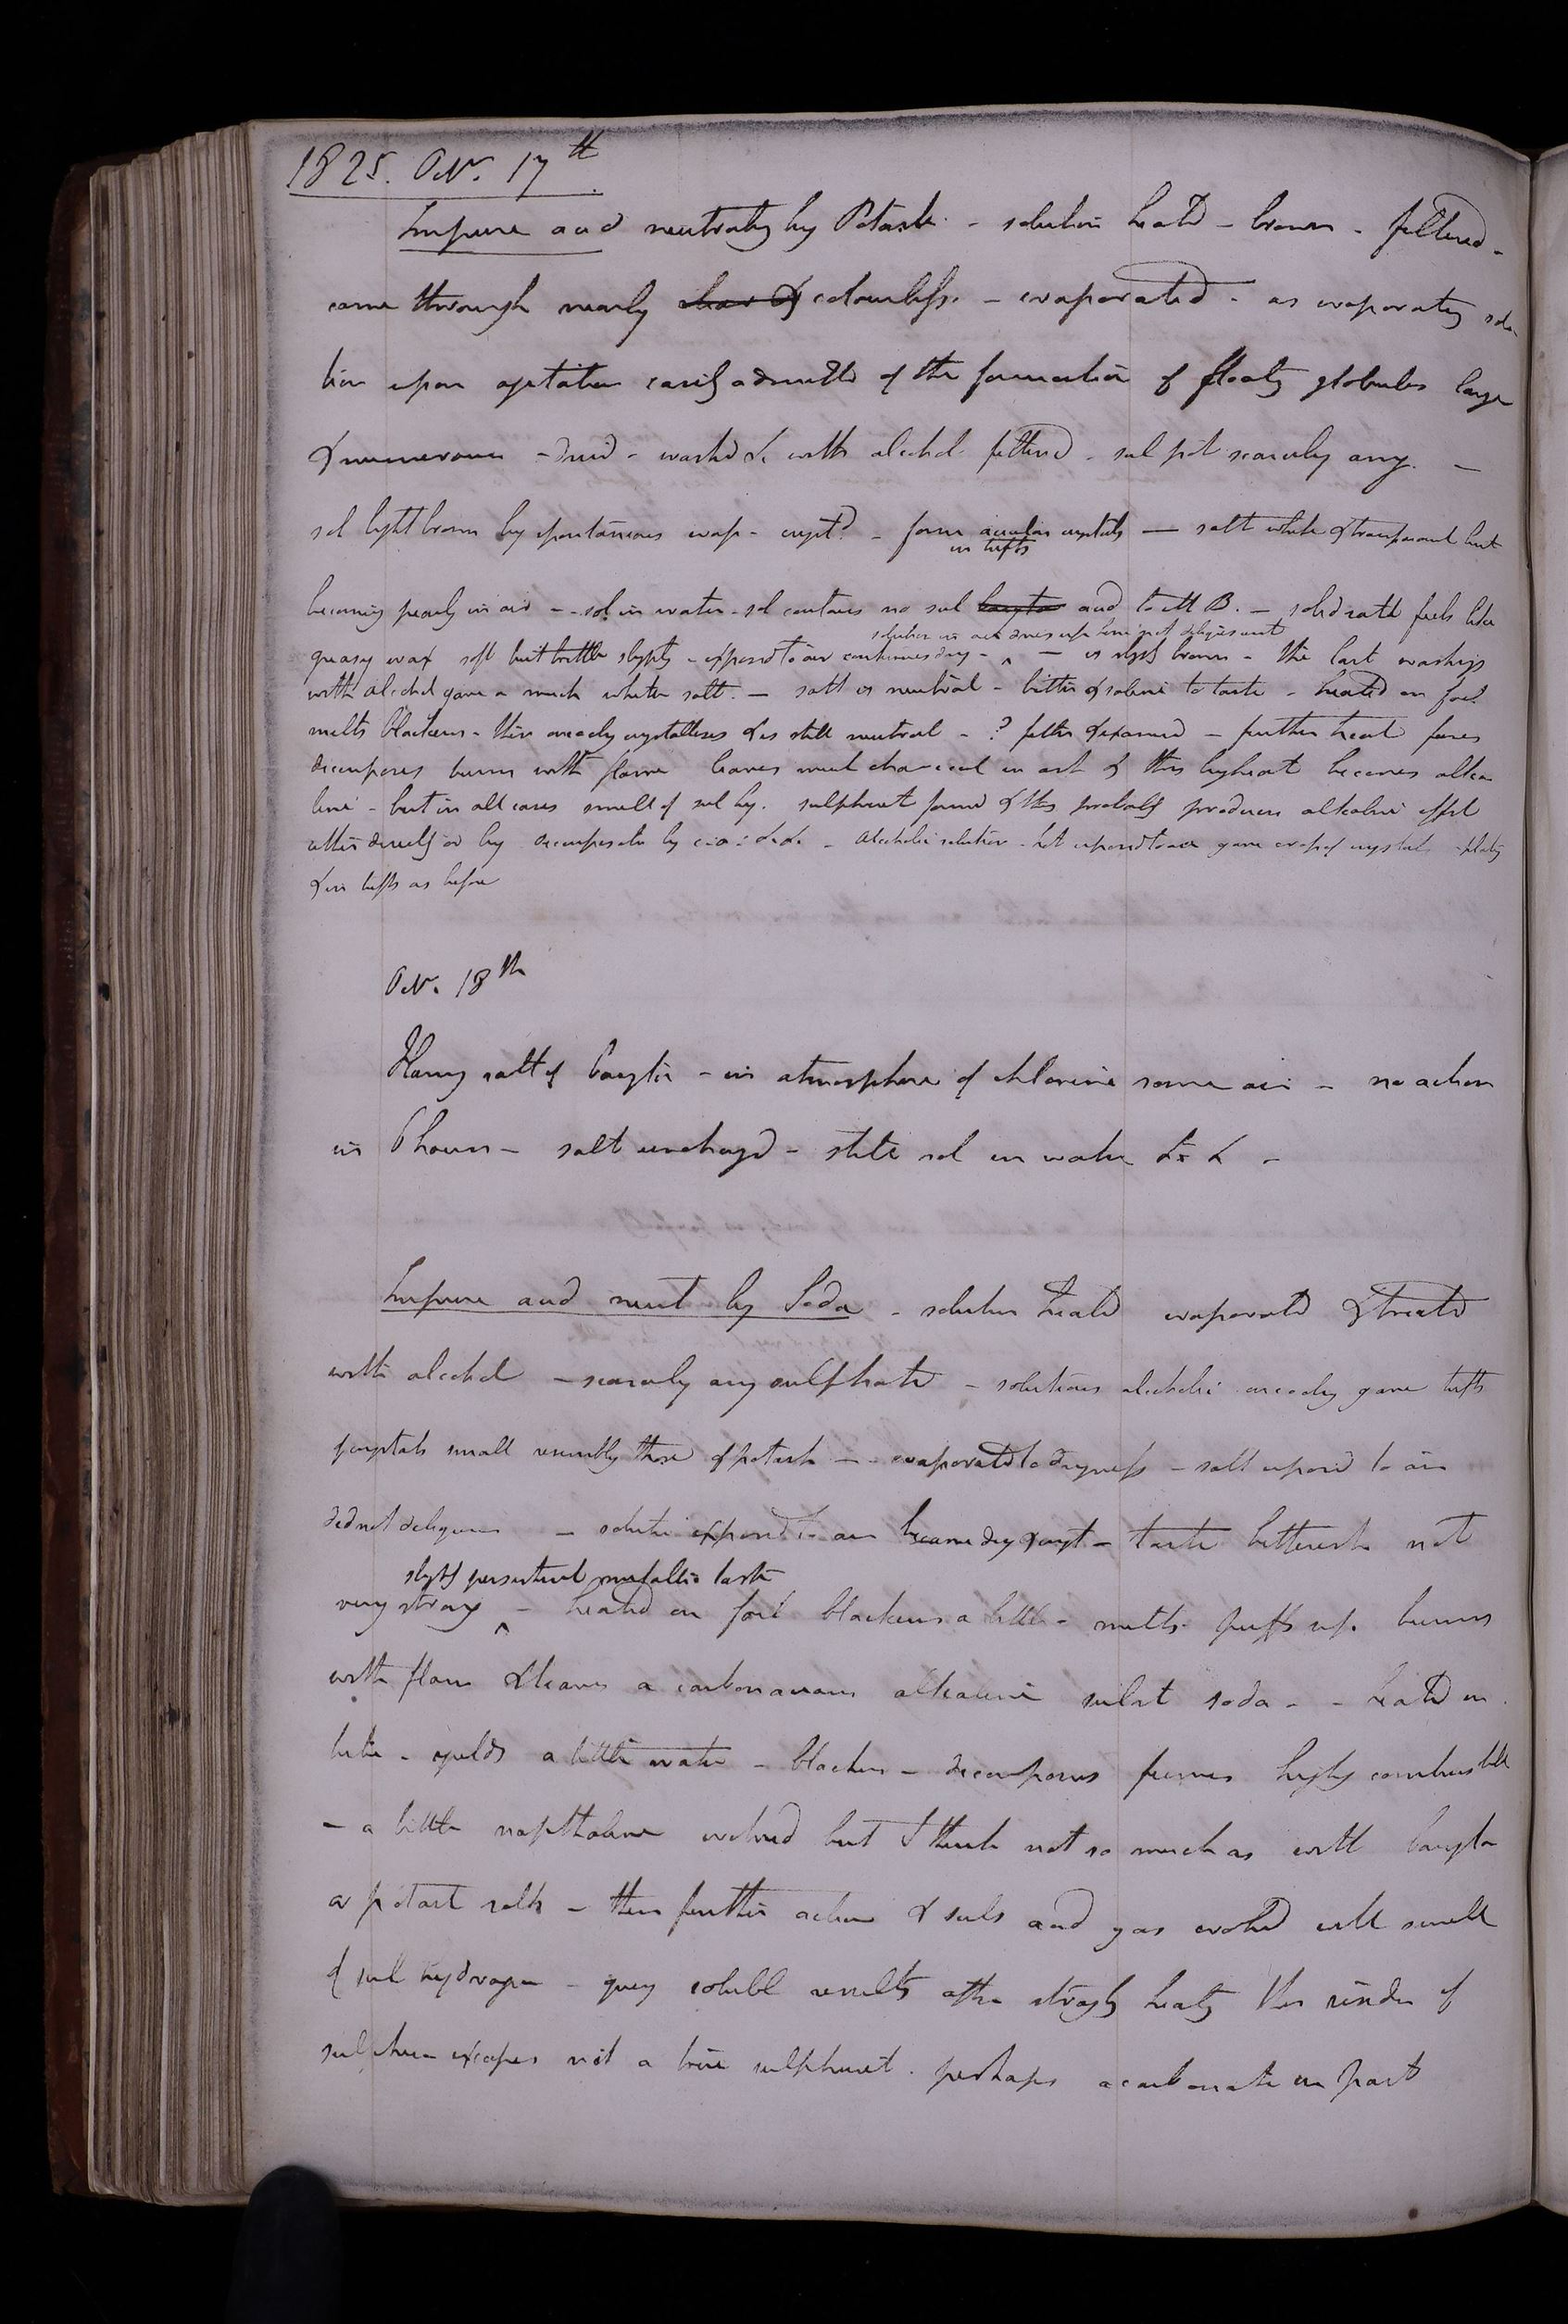 1825. Oct. 17th
Impure acid neutralizg by Potash. - solution heatd - brown - filtered -
came through nearly clear & colourless. - evaporated - as evaporatg solu
tion upon agitation easily admitted of the formation of floatg globules large
& numerous - dried - washed &c with alcohol filtered. sul pot scarcely any. -
sol light brown by spontaneous evap - crystd - form acicular crystals — salt white & transparent but
in tufts
becoming pearly in air - - sol in water - sol contains no sul baryta acid to M B. - solid salt feels like
solution in air dries up being not deliquescent
greasy wax soft but brittle slightly - exposed to air continues dry - ^ - is slightly brown - the last washings
with alcohol gave a much whiter salt. - salt is neutral - bitter & saline to taste - heated on foil
melts blackens - then already crystallises & is still neutral - ? filter & examined - further heat fuses
decomposes burns with flame leaves much charcoal in ash & this by heat becomes alka
line - but in all cases smell of sul hy. sulphuret formd & this probably produces alkaline effect
either directly or by decomposition by c: a: &c &c. - Alcoholic solution hot exposed to air gave crop of crystals - platy
& in tufts as before
Oct. 18th
Flamy salt of Baryta - in atmosphere of chlorine some air - no action
in 6 hours - salt unchangd - still sol in water &c &c -
Impure acid neut by Soda - solution heatd evaporatd & treatd
with alcohol - scarcely any sulphate - solutions alcoholic already gave tufts
of crystals small resemblg those of potash - - evaporatd to dryness - salt exposd to air
did not deliquesce - solution exposed to air became dry & cryst - taste bitterish not
slightly persistent metallic taste
very strong ^ - heatd on foil blackens a little - melts puffs up burns
with flame & leaves a carbonaceous alkaline sulret soda - - heatd in
tube - yields a little water - blackens - decomposes fumes highly combustible
- a little napthaline evolved but I think not so much as with baryta
or potash salts - then further action & suls acid gas evolvd with smell
of sul hydrogen - grey soluble results after strongly heatg then residue of
sulphur escapes not a true sulphuret. perhaps a carbonate in part